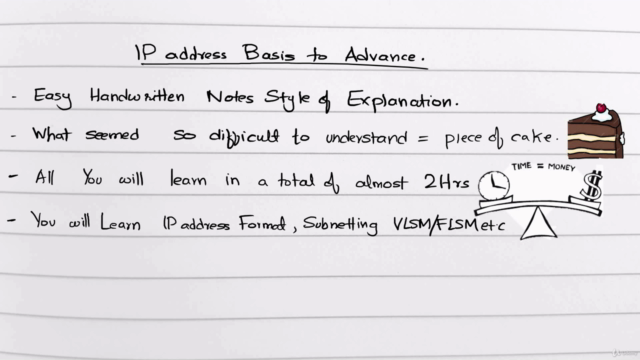 IP address Basis to Advance.
- Easy Handwritten Notes Style of Explanation.
- What seemed so difficult to understand = piece of cake.
TIME = MONEY
- All You will learn in a total of almost 2Hrs
- You will Learn IP address Format, Subnetting VLSM/FLSM etc